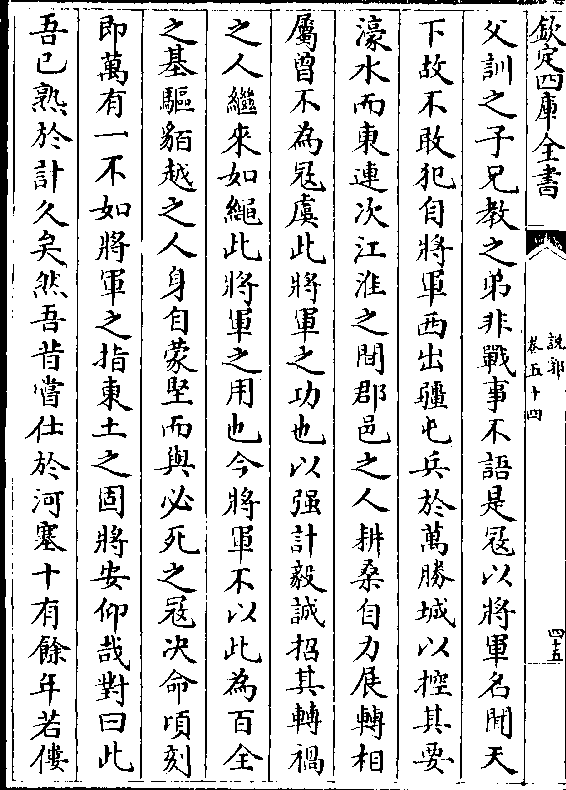 欽定四庫全書
說郛
卷五十四
四十五
父訓之子兄教之弟非戰事不語是冦以將軍名聞天
下故不敢犯自將軍西出疆屯兵於萬勝城以控其要
濠水而東連次江淮之間郡邑之人耕桑自力展轉相
屬曾不為冦虞此將軍之功也以强計毅誠招其轉禍
之人繼來如繩此將軍之用也今將軍不以此為百全
之基驅貊越之人身自蒙堅而與必死之冦决命頃刻
即萬有一不如將軍之指東土之固將安仰哉對曰此
吾已熟於計久矣然吾昔嘗仕於河塞十有餘年若僂